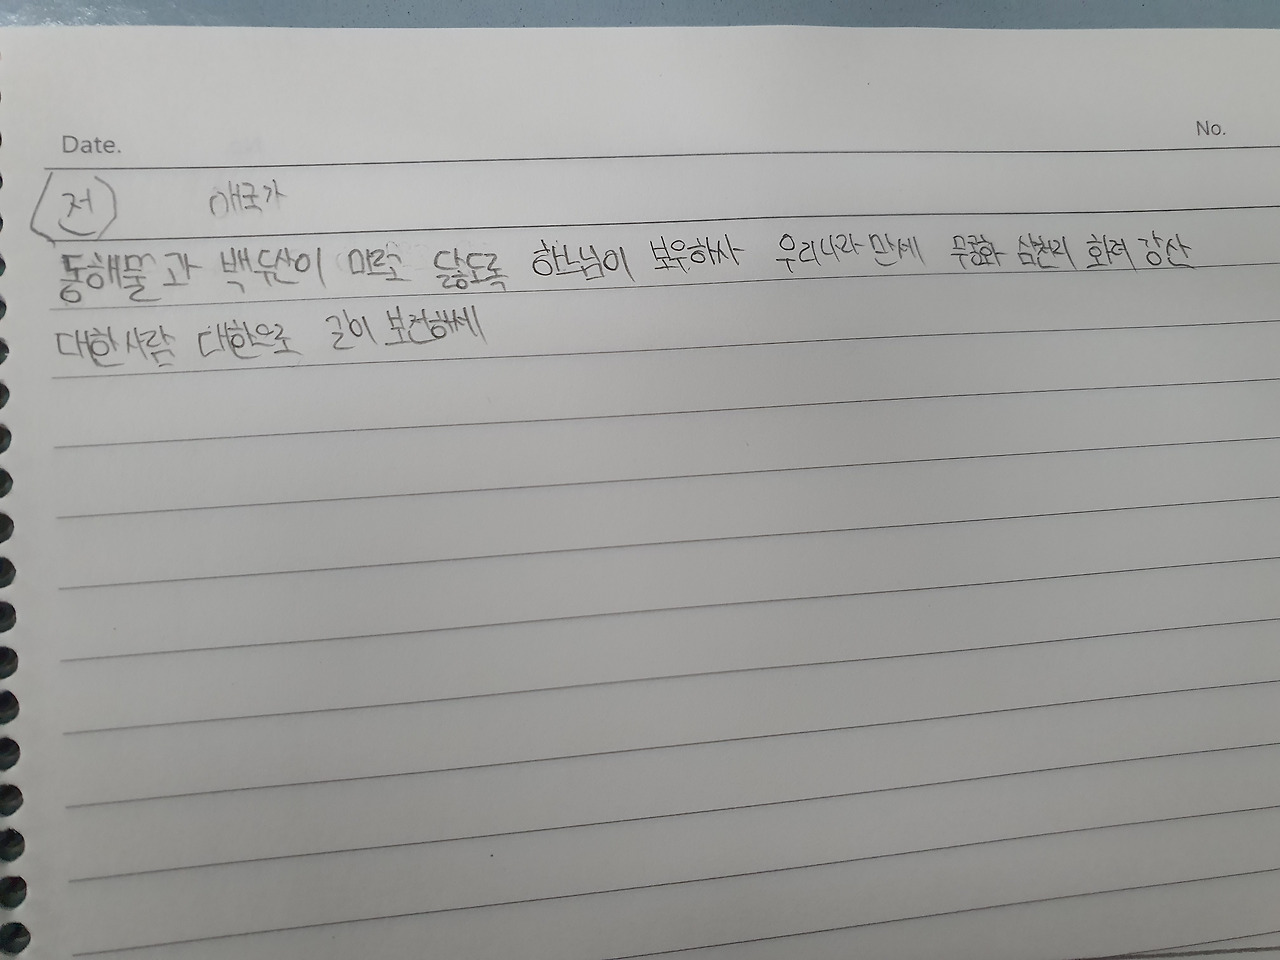 Date. No.
전 애국가
동해물과 백두산이 마르고 닳도록 하느님이 보우하사 우리나라 만세 무궁화 삼천리 화려 강산
대한사람 대한으로 길이 보전하세